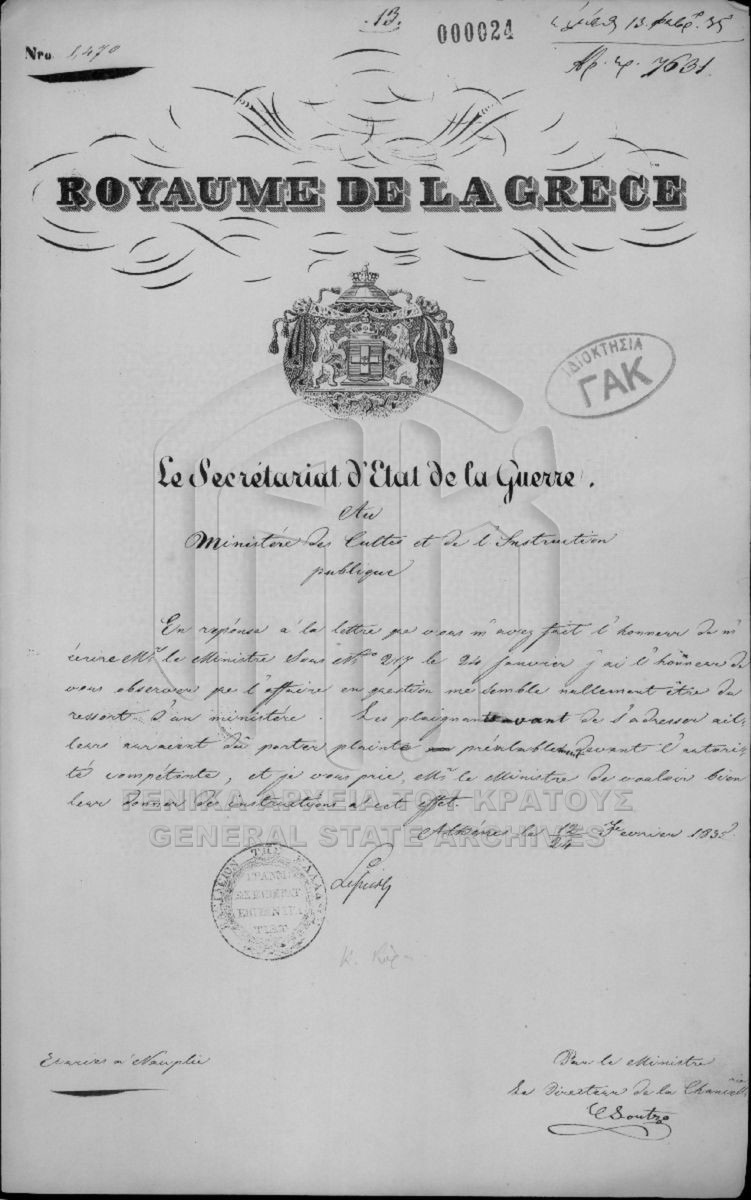 13.
000024
13 35
Nro 1,470
Αρ. π. 7631.
ROYAUME DE LA GRECE
ΙΔΙΟΚΤΗΣΙΑ
ΓΑΚ
Le Secrétariat d'Etat de la Guerre.
Au
Ministére des Cultes et de l'Instruction
publique
En reponse a la lettre que vous m'avez fait l'honneur de m'
écrire Mr. le Ministre sous No. 217 le 24 janvier j'ai l'honneur de
vous observer que l'affaire en question me semble nullement être du
ressort d'un ministére. Les plaignants avant de s'adresser ail-
leurs auraient dû porter plainte préalablement devant l'autori-
té compétente, et je vous prie, Mr. le Ministre de vouloir bien
leur donner des instructions a cet effet.
ΓΕΝΙΚΑ ΑΡΧΕΙΑ ΤΟΥ ΚΡΑΤΟΥΣ
GENERAL STATE ARCHIVES
Athénes le 12/24 Fevrier 183
ΤΗΣ ΕΛΛΑΔΟΣ
ΓΡΑΜΜ
ΕΠΙ ΤΩΝ ΣΤΡΑ
Lesuire
Ecuries a Nauplie
Par le Ministre
Le Directeur de la Chancellerie
C Soutzo